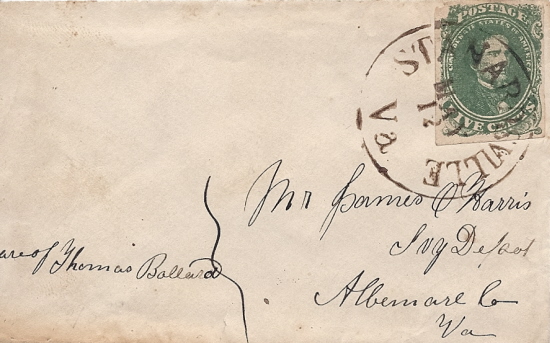 POSTAGE
CONFEDERATE STATES OF AMERICA
FIVE CENTS
STANARDSVILLE
Va
12
Mr James O Harris
Ivy Depot
Albemarle Co
Va
are of Thomas Ballard